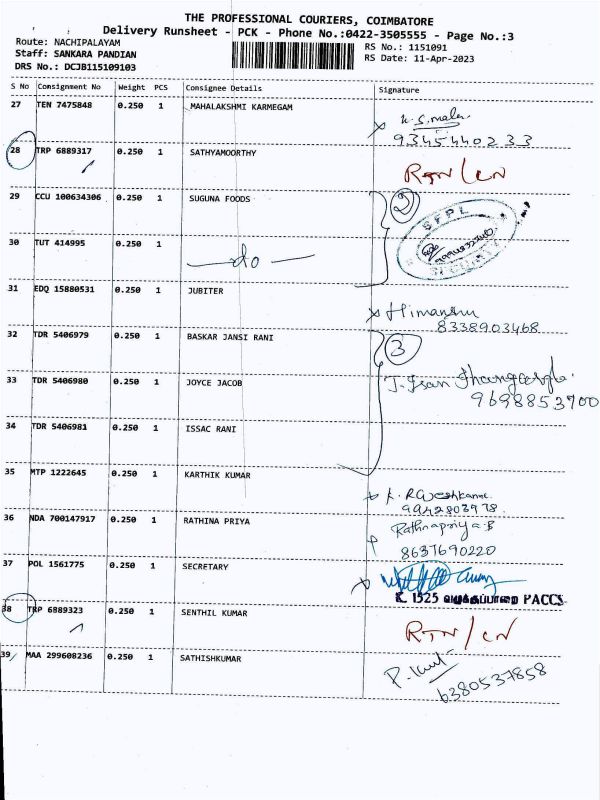 THE PROFESSIONAL COURIERS, COIMBATORE
Delivery Runsheet - PCK - Phone No.:0422-3505555 - Page No.:3
Route: NACHIPALAYAM
RS No.: 1151091
Staff: SANKARA PANDIAN
RS Date: 11-Apr-2023
DRS No.: DCJB115109103
S No Consignment No Weight PCS Consignee Details Signature
27 TEN 7475848 0.250 1 MAHALAKSHMI KARMEGAM
9345440233
28 TRP 6889317 0.250 1 SATHYAMOORTHY
RTN/CN
29 CCU 100634306 0.250 1 SUGUNA FOODS
2
SFPL
SECURITY
30 TUT 414995 0.250 1
do
31 EDQ 15880531 0.250 1 JUBITER
Himanshu
8338903468
32 TDR 5406979 0.250 1 BASKAR JANSI RANI
3
33 TDR 5406980 0.250 1 JOYCE JACOB
9698853700
34 TDR 5406981 0.250 1 ISSAC RANI
35 MTP 1222645 0.250 1 KARTHIK KUMAR
9942803978
36 NDA 700147917 0.250 1 RATHINA PRIYA
Rathnapriya.B
8637690220
37 POL 1561775 0.250 1 SECRETARY
K. 1525 வழுக்குப்பாறை PACCS
38 TRP 6889323 0.250 1 SENTHIL KUMAR
RTN/CN
39 MAA 299608236 0.250 1 SATHISHKUMAR
6380537858